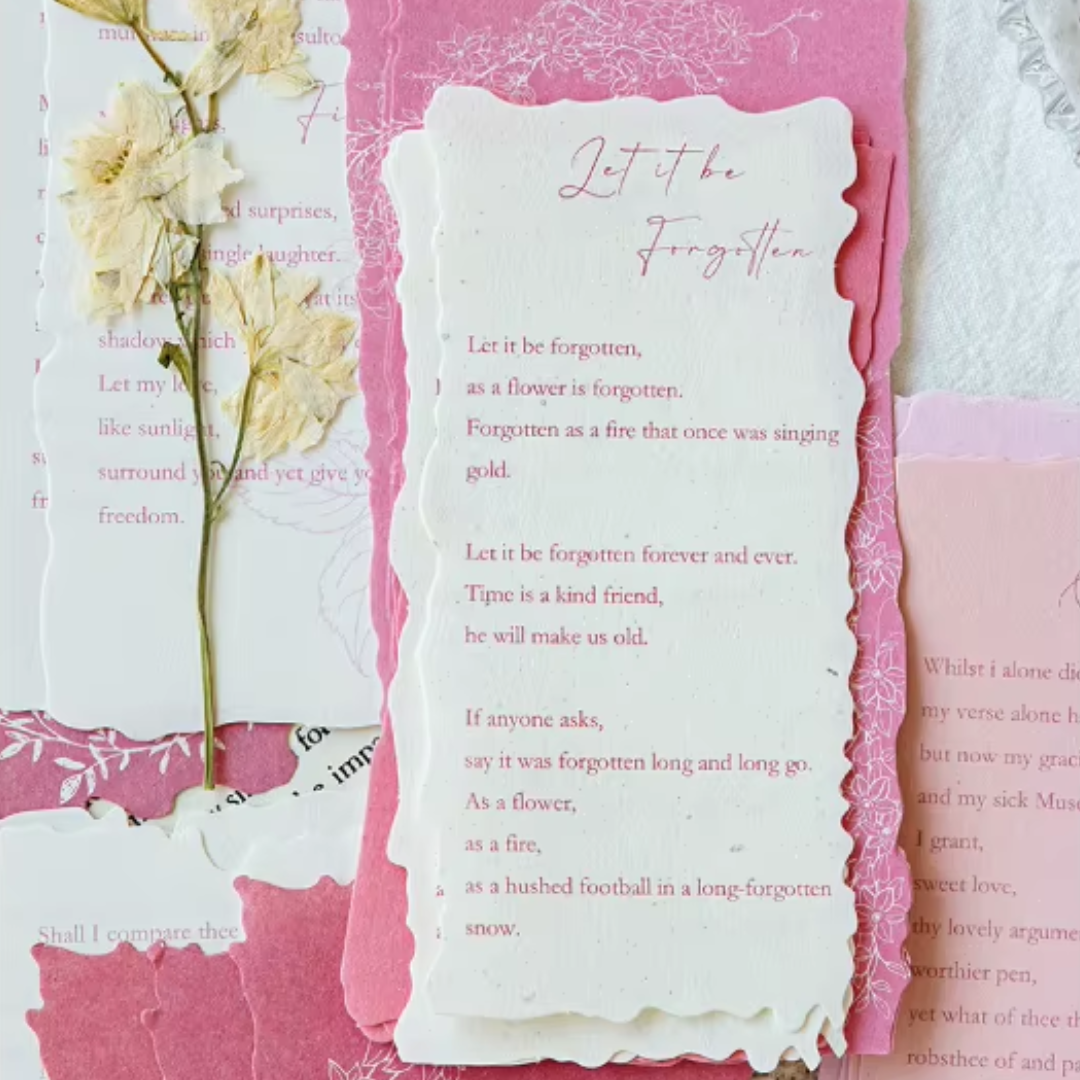 Let it be
Forgotten
Let it be forgotten,
as a flower is forgotten.
Forgotten as a fire that once was singing
gold.
Let it be forgotten forever and ever.
Time is a kind friend,
he will make us old.
If anyone asks,
say it was forgotten long and long go.
As a flower,
as a fire,
as a hushed football in a long-forgotten
snow.
surprises,
single laughter.
shadow which
Let my love,
like sunlight,
surround you and yet give
freedom.
Shall I compare thee
Whilst i alone
my verse alone
but now my
and my sick
I grant,
sweet love,
thy lovely
worthier pen,
yet what of thee
robsthee of and